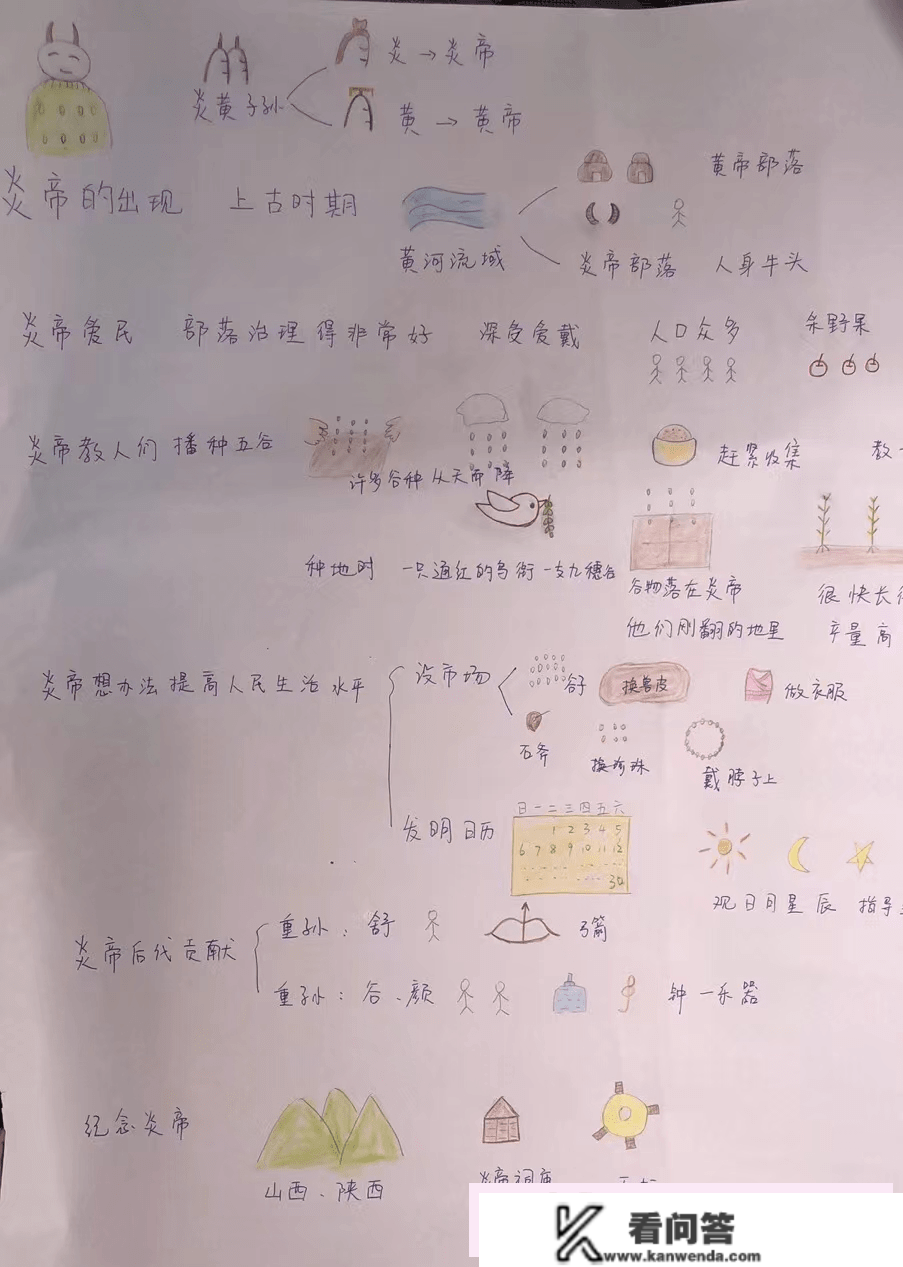 炎 → 炎帝
炎黄子孙
黄 → 黄帝
黄帝部落
炎帝的出现 上古时期
黄河流域
炎帝部落 人身牛头
炎帝爱民 部落治理得非常好 深受爱戴
人口众多
采野果
炎帝教人们播种五谷
赶紧收集
教
许多谷种从天而降
种地时 一只通红的鸟衔一支九穗谷
谷物落在炎帝
他们刚翻的地里
很快长得
产量高
炎帝想办法提高人民生活水平
没市场
谷子
换兽皮
做衣服
石斧
换珍珠
戴脖子上
发明日历
日一二三四五六
1 2 3 4 5
6 7 8 9 10 11 12
30
观日月星辰 指导
炎帝后代贡献
重孙：舒
弓箭
重孙：谷、颜
钟一乐器
纪念炎帝
山西、陕西
炎帝祠庙
看问答
www.kanwenda.com